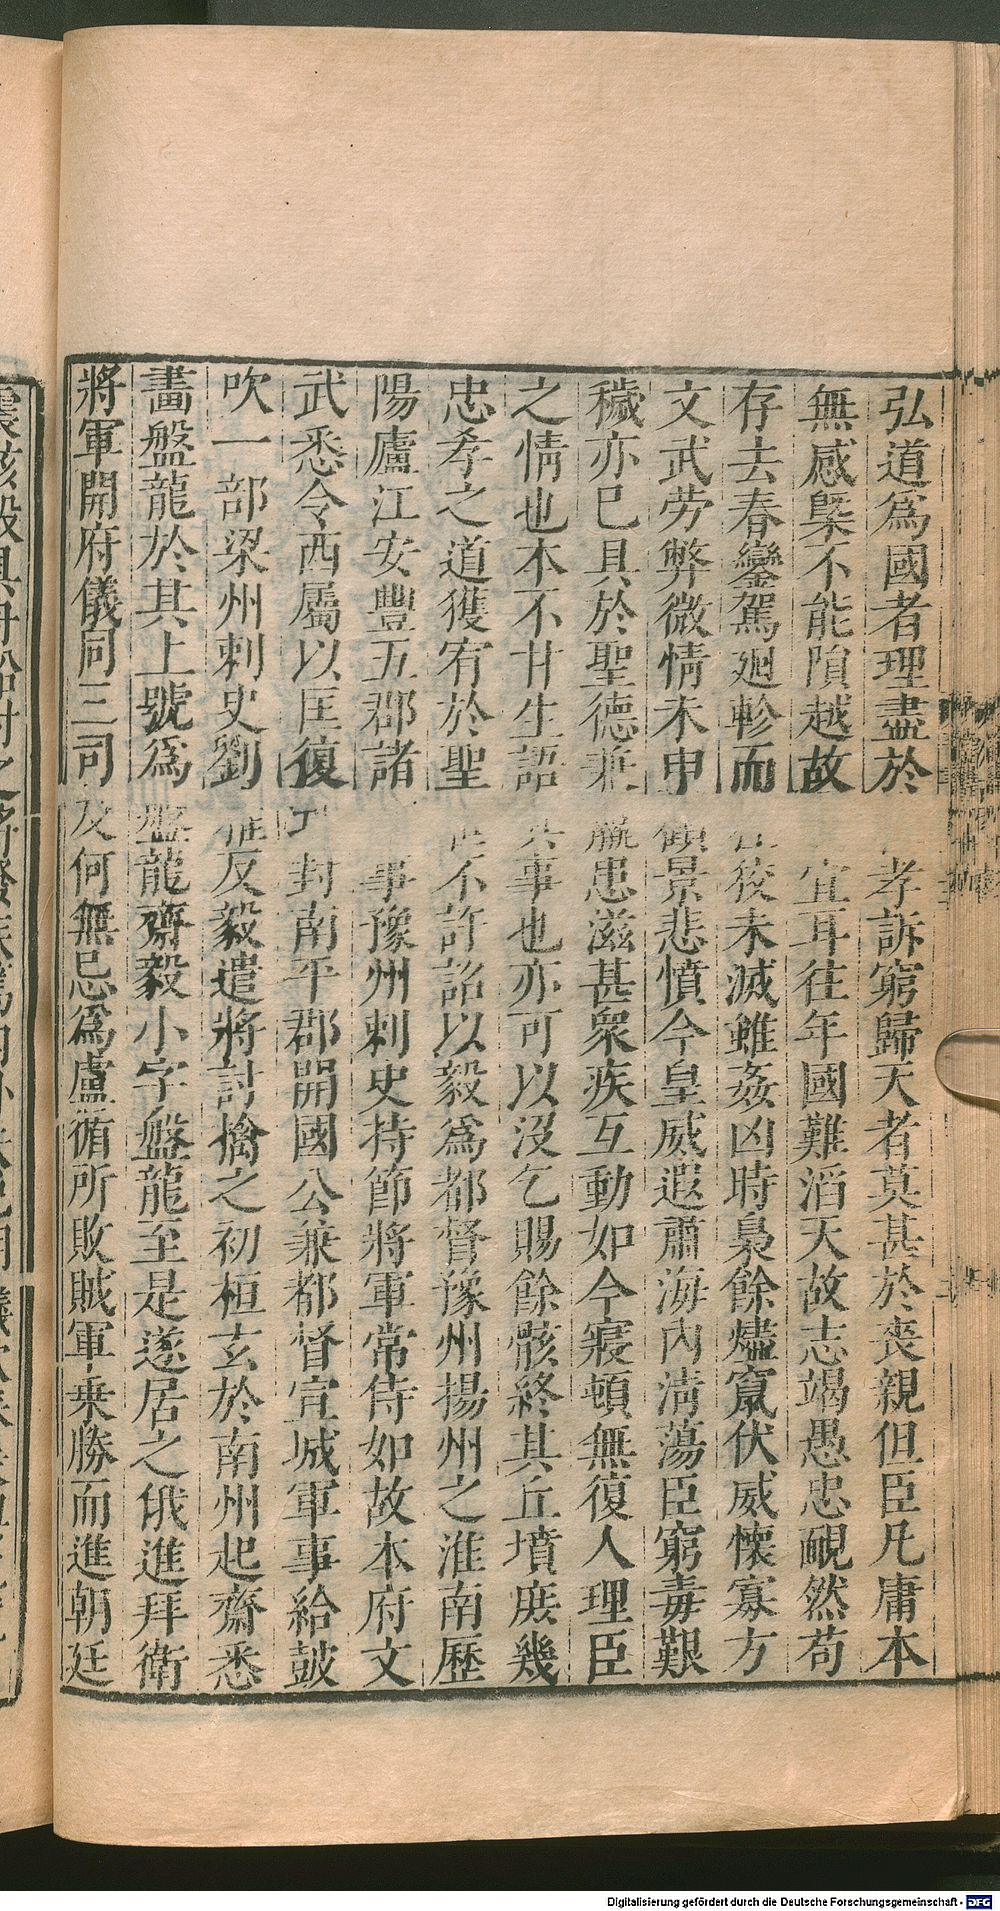 弘道爲國者理盡於孝訴窮歸天者莫甚於喪親但臣凡庸本
無感槩不能隕越故宜耳往年國難滔天故志竭愚忠靦然苟
存去春鑾駕廻軫而狡未滅雖姦凶時梟餘燼竄伏威懷寡方
文武劳弊微情未申顧景悲憤今皇威遐肅海內清蕩臣窮毒艱
穢亦巳具於聖德兼羸患滋甚衆疾互動如今寢頓無復人理臣
之情也本不甘生語其事也亦可以沒乞賜餘骸終其丘墳庶幾
忠孝之道獲宥於聖世不許詔以毅爲都督豫州揚州之淮南歷
陽廬江安豐五郡諸事豫州刺史持節將軍常侍如故本府文
武悉令西屬以匡復封南平郡開國公兼都督宣城軍事給鼓
吹一部梁州刺史劉雅反毅遣將討擒之初桓玄於南州起齋悉
畫盤龍於其上號爲盤龍齋毅小字盤龍至是遂居之俄進拜衛
將軍開府儀同三司及何無忌爲盧循所敗賊軍乗勝而進朝廷
Digitalisierung gefördert durch die Deutsche Forschungsgemeinschaft - DFG